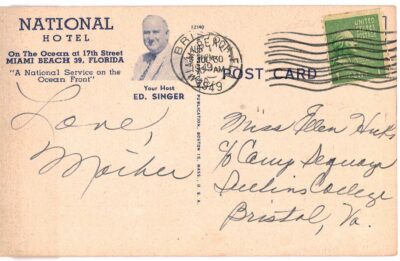 NATIONAL
HOTEL
On The Ocean at 17th Street
MIAMI BEACH 39, FLORIDA
"A National Service on the
Ocean Front"
Your Host
ED. SINGER
12190
1949
POST CARD
UNITED STATES
POSTAGE
PUBLICATION, BOSTON 15, MASS., U.S.A.
Love,
Mother
Miss Ellen Hicks
c/o Camp Sequoya
College
Bristol, Va.